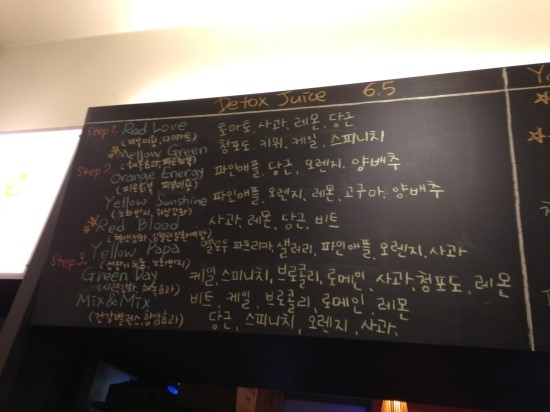 Detox Juice 6.5
Step 1. Red Love 토마토, 사과, 레몬, 당근
(피부미용, 다이어트)
Mellow Green 청포도, 키위, 케일, 스피니치
Step 2. Orange Energy 파인애플, 당근, 오렌지, 양배추
Yellow Sunshine 파인애플, 오렌지, 레몬, 고구마, 양배추
Red Blood 사과, 레몬, 당근, 비트
Step 3. Yellow Papa 옐로우 파프리카, 샐러리, 파인애플, 오렌지, 사과
Green Day 케일, 스피니치, 브로콜리, 로메인, 사과, 청포도, 레몬
Mix&Mix 비트, 케일, 브로콜리, 로메인, 레몬
(건강밸런스, 항염효과) 당근, 스피니치, 오렌지, 사과.